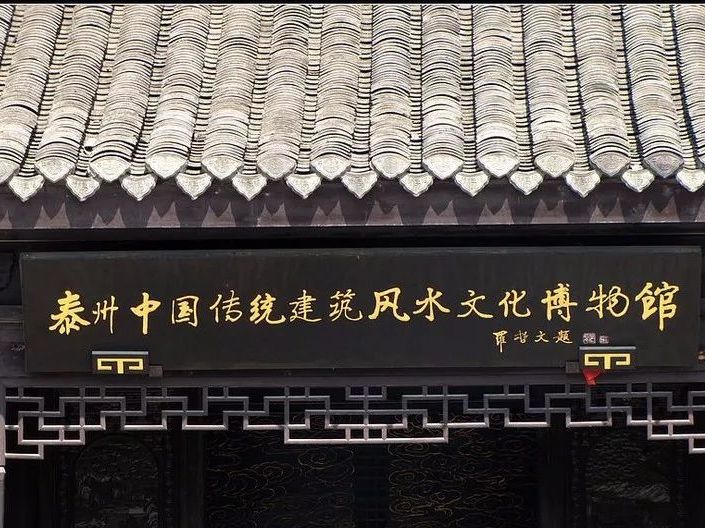 泰州中国传统建筑风水文化博物馆
罗哲文题